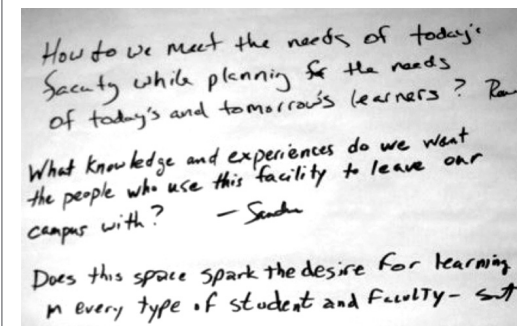 How to we meet the needs of today's
facuty while planning for the needs
of today's and tomorrow's learners?
What knowledge and experiences do we want
the people who use this facility to leave our
campus with? - Sandra
Does this space spark the desire for learning
in every type of student and Faculty -